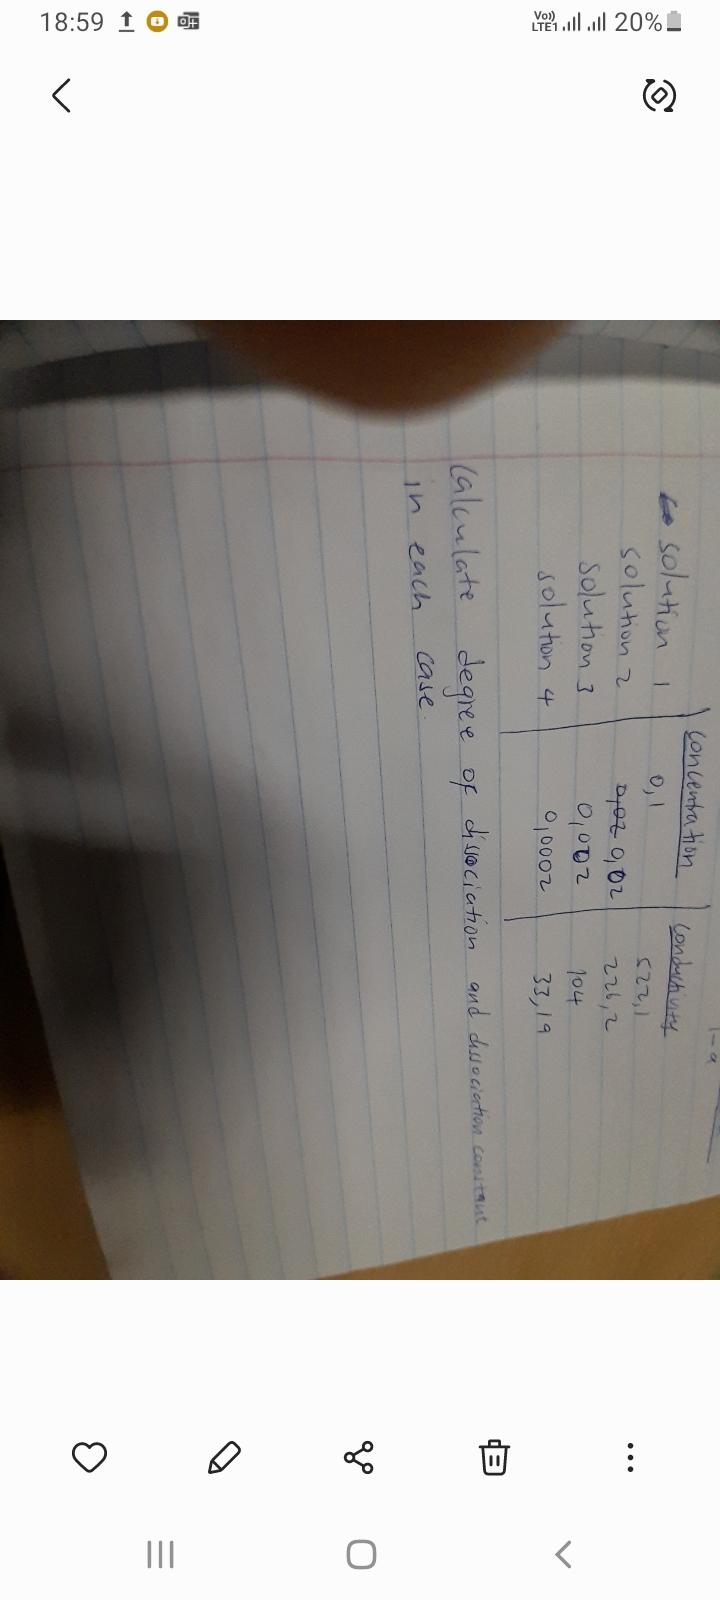 18:59
Vo))
LTE1
20%
1-a
Concentration
Conductivity
Solution 1
0,1
522,1
Solution 2
0,02
226,2
Solution 3
0,002
104
Solution 4
0,0002
33,19
Calculate degree of dissociation and dissociation constant
in each case.